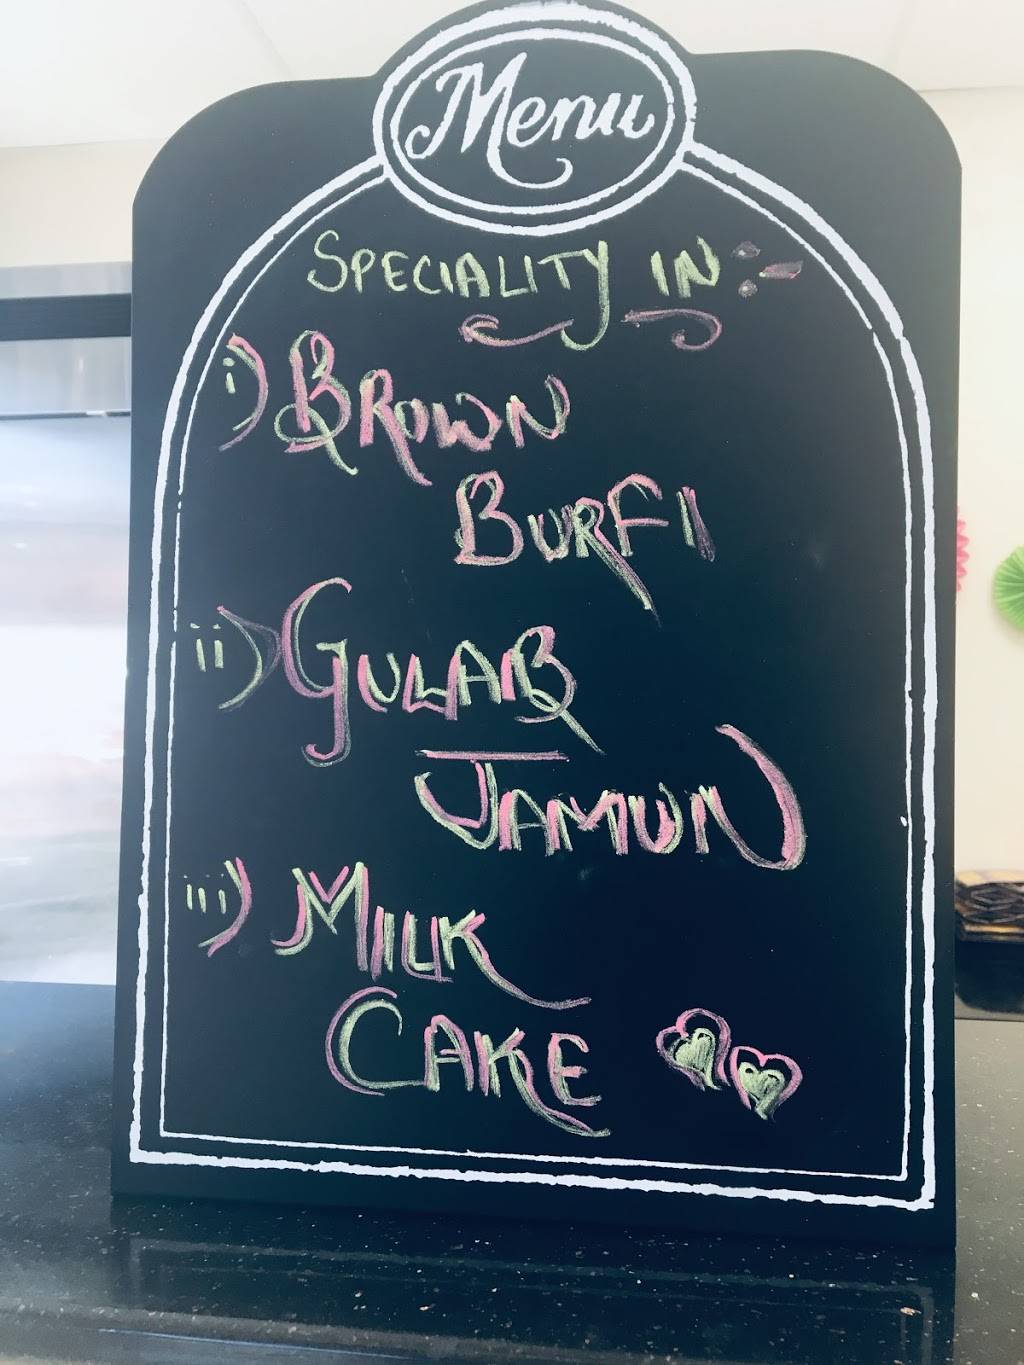 Menu
SPECIALITY IN :-
i) BROWN
BURFI
ii) GULAB
JAMUN
iii) MILK
CAKE